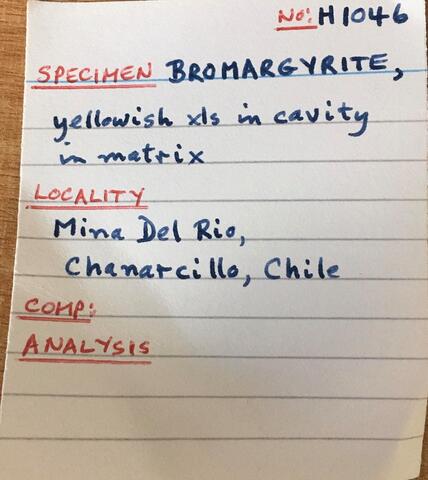 No: H1046
SPECIMEN BROMARGYRITE,
yellowish xls in cavity
in matrix
LOCALITY
Mina Del Rio,
Chanarcillo, Chile
COMP:
ANALYSIS